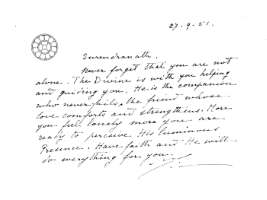 27-9-51.
Surendranath:
Never forget that you are not
alone. The Divine is with you helping
and guiding you. He is the companion
who never fails, the friend whose
love comforts and strengthens. More
you feel lonely more you are
ready to perceive His luminous
Presence. Have faith and He will
do everything for you.